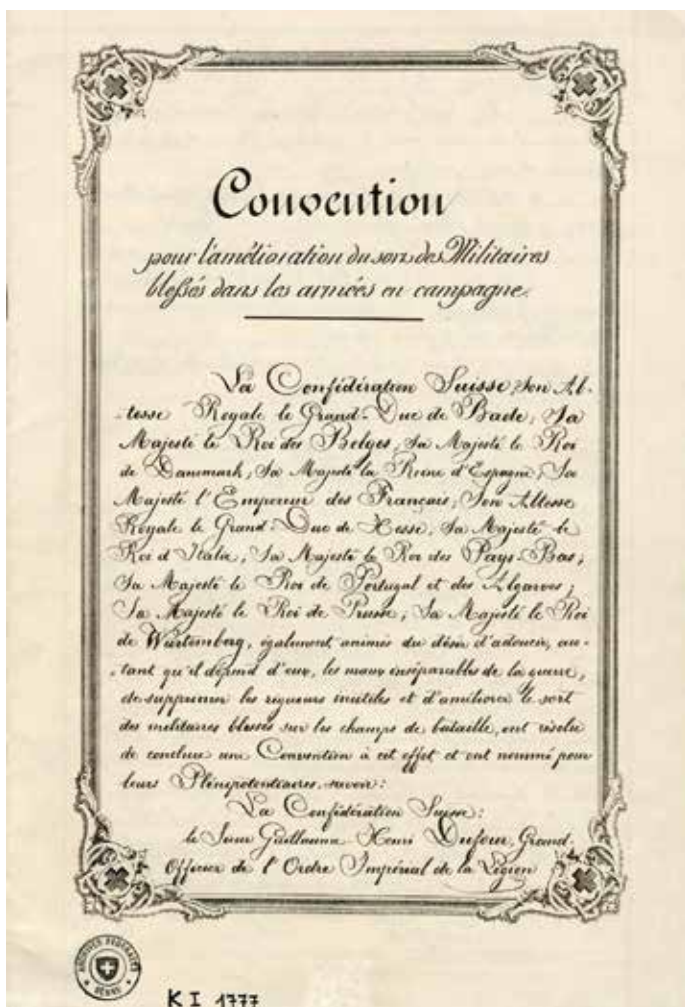 Convention
pour l'amélioration du sort des Militaires
blessés dans les armées en campagne.
La Confédération Suisse; Son Al-
-tesse Royale le Grand-Duc de Bade; Sa
Majesté le Roi des Belges; Sa Majesté le Roi
de Danemark; Sa Majesté la Reine d'Espagne; Sa
Majesté l'Empereur des Français; Son Altesse
Royale le Grand-Duc de Hesse; Sa Majesté le
Roi d'Italie; Sa Majesté le Roi des Pays-Bas;
Sa Majesté le Roi de Portugal et des Algarves;
Sa Majesté le Roi de Prusse; Sa Majesté le Roi
de Würtemberg, également animés du désir d'adoucir, au-
-tant qu'il dépend d'eux, les maux inséparables de la guerre,
de supprimer les rigueurs inutiles et d'améliorer le sort
des militaires blessés sur les champs de bataille, ont résolu
de conclure une Convention à cet effet et ont nommé pour
leurs Plénipotentiaires, savoir:
La Confédération Suisse:
le Sieur Guillaume Henri Dufour, Grand
Officier de l'Ordre Impérial de la Légion
ARCHIVES FEDERALES
BERNE
K I 1777